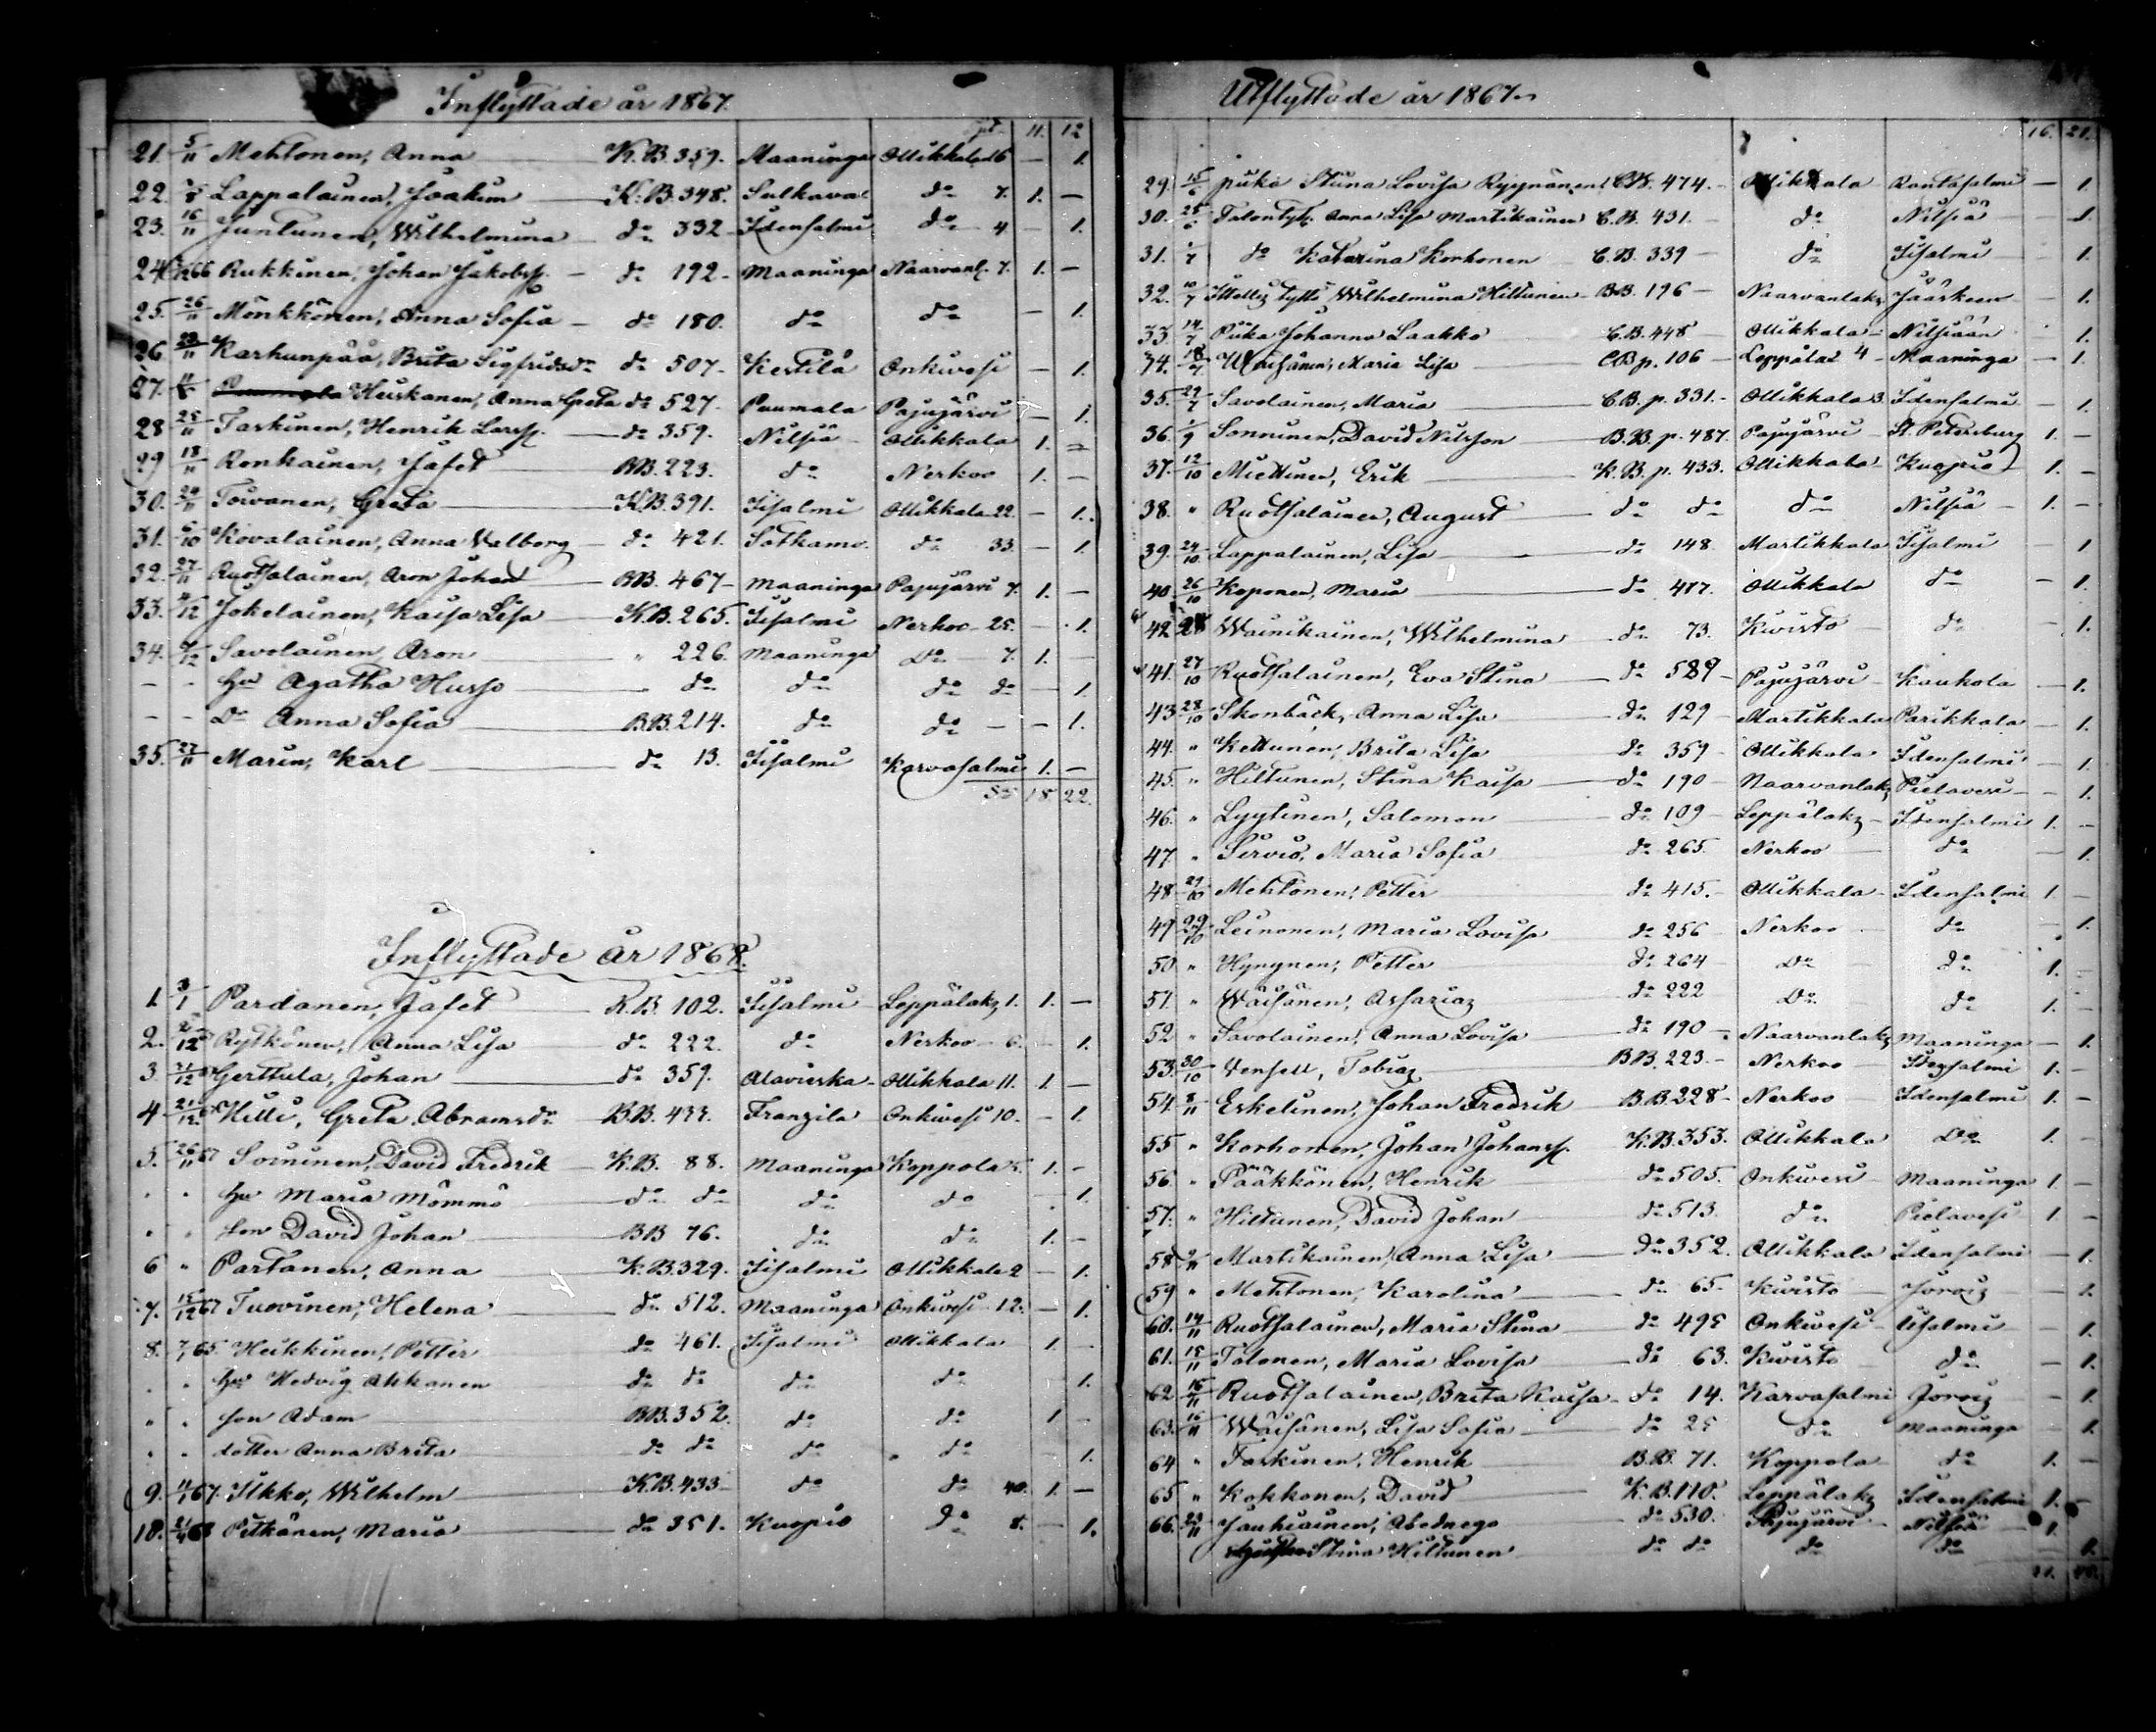 Inflyttade år 1867.
11. 12
21. 5/11 Mehtonen, Anna K.B. 359. Maaninga Ollikkala 16 — 1.
22. Lappalainen, Joakim K.B. 348. Sulkava do 7. 1. —
23. 16/11 Juntunen, Wilhelmina do 332 Idensalmi do 4 — 1.
24. Rukkinen, Johan Jakobss. do 192 Maaninga Naarvanl. 7. 1. —
25. 26/11 Mönkkönen, Anna Sofia do 180. do do — 1.
26. 23/11 Karhunpää, Brita Sigfridsdr do 507 Kestilä Onkivesi — 1.
27. Heiskanen, Anna Greta do 527. Puumala Pajujärvi — 1.
28 25/11 Taskinen, Henrik Larss. do 359. Nilsiä Ollikkala 1. —
29 18/11 Ronkainen, Jafet BB. 223. do Nerkoo 1. —
30. Toivanen, Greta K.B. 391. Iisalmi Ollikkala 22. — 1.
31. 6/10 Kovalainen, Anna Walborg do 421. Sotkamo. do 33. — 1.
32. 27/11 Ruotsalainen, Aron Johan BB. 467 Maaninga Pajujärvi 7. 1. —
33. 4/12 Jokelainen, Kaisa Lisa K.B. 265. Iisalmi Nerkoo 25. — 1.
34. Savolainen, Aron " 226. Maaninga Do 7. 1. —
— — hu Agatha Husso " do do do do — 1.
— — Dr Anna Sofia B.B. 214. do do — — 1.
35. 27/11 Marin, Karl do 13. Iisalmi Karvasalmi 1. —
18. 22.
Inflyttade år 1868.
1. 3/1 Pardanen, Jafet K.B. 102. Iisalmi Leppälaks 1. 1. —
2. Rytkönen, Anna Lisa do 222. do Nerkoo 6. — 1.
3. 21/12 Gerttula, Johan do 359. Alavieska Ollikkala 11. 1. —
4 Hilli, Greta Abramsdr B.B. 433. Franzila Onkivesi 10. — 1.
5. 26/11 67 Soininen, David Fredrik K.B. 88. Maaninga Koppola 1. —
" " hu Maria Mömmö do do do do — 1.
" " son David Johan BB 76. do do 1. —
6 " Partanen, Anna K.B. 329. Iisalmi Ollikkala 2 — 1.
7. 15/12 67 Tuovinen, Helena do 512. Maaninga Onkivesi 12. — 1.
8. Heikkinen, Petter do 461. Iisalmi Ollikkala 1. —
" " hu Hedvig Ahkanen do do do do 1.
" " son Adam BB. 352. do do 1 —
" " dotter Anna Brita do do do do 1.
9. Ilkko, Wilhelm K.B. 433 do do 40. 1. —
10. Pitkänen, Maria do 351. Kuopio do 8. — 1.
Utflyttade år 1867.
16. 21.
29. 15/6 piika Stina Lovisa Ryynänen C.B. 474. Ollikkala Rantasalmi — 1.
30. 25/6 Talontyt. Anna Lisa Martikainen C.B. 431. do Nilsiä 1.
31. 1/7 do Katarina Korhonen C.B. 339 do Iisalmi 1.
32. 10/7 Itsellis tyttö Wilhelmina Hiltunen B.B. 196 Naarvanlaks Jääskeen — 1.
33 14/7 Piika Johanna Laakko C.B. 448 Ollikkala Nilsiään 1.
34. 18/7 Väisänen, Maria Lisa C.B. p. 106 Leppälax 4 Maaninga — 1.
35. 29/7 Savolainen, Maria C.B. p. 331. Ollikkala 3 Idensalmi — 1.
36. 1/9 Sonninen, David Nilsson B.B. p. 487. Pajujärvi St. Petersburg 1. —
37. 12/10 Miettinen, Erik K.B. p. 433. Ollikkala Kuopio 1. —
38. " Ruotsalainen, August do do do Nilsiä 1. —
39. 24/10 Lappalainen, Lisa do 148. Martikkala Iisalmi 1
40. 26/10 Koponen, Maria do 417. Ollikkala do — 1.
42. Wainikainen, Wilhelmina do 73. Kivisto do — 1.
41. 27/10 Ruotsalainen, Eva Stina do 529 Pajujärvi Kaukola — 1.
43 28/10 Skonbäck, Anna Lisa do 129 Martikkala Parikkala — 1.
44. " Kettunen, Brita Lisa do 359 Ollikkala Idensalmi — 1.
45. " Hiltunen, Stina Kaisa do 190 Naarvanlaks Pielavesi — 1.
46. " Lyytinen, Salomon do 109 Leppälaks Idensalmi 1. —
47. " Servio, Maria Sofia do 265. Nerkoo do — 1.
48 29/10 Mehtonen, Petter do 415. Ollikkala Idensalmi 1 —
49 29/10 Leinonen, Maria Lovisa do 256 Nerkoo do — 1.
50 " Hyngnen, Petter do 264 Do do 1. —
51. " Wäisänen, Assarias do 222 Do do 1. —
52 " Savolainen, Anna Lovisa do 190 Naarvanlaks Maaninga — 1.
53. 30/10 Vensell, Tobias BB. 223. Nerkoo Idensalmi 1. —
54. 8/11 Eskelinen, Johan Fredrik B.B. 228 Nerkoo Idensalmi 1. —
55 " Korhonen, Johan Johanss. K.B. 353. Ollikkala Do 1. —
56. " Pääkkönen, Henrik do 505. Onkivesi Maaninga 1. —
57. " Hiltunen, David Johan do 513. do Pielavesi 1. —
58 Martikainen, Anna Lisa do 352. Ollikkala Idensalmi — 1.
59 " Mehtonen, Karolina do 65. Kivisto Jorois — 1.
60. 14/11 Ruotsalainen, Maria Stina do 495 Onkivesi Iisalmi — 1.
61. 15/11 Tolonen, Maria Lovisa do 63. Kivisto do — 1.
62. 16/11 Ruotsalainen, Brita Kaisa do 14. Karvasalmi Jorois — 1.
63. 16/11 Wäisänen, Lisa Sofia do 25 do Maaninga — 1.
64 " Taskinen, Henrik B.B. 71. Koppola do 1. —
65 " Kokkonen, David K.B. 110. Leppälaks Idensalmi 1. —
66. Jauhiainen, Abednego do 530. Pajujärvi Nilsiä 1.
hustru Stina Hiltunen do do do do 1.